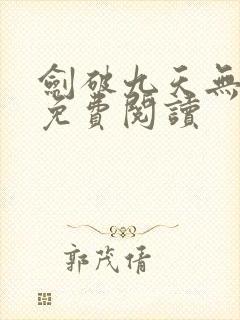 劍破九天無
免費閱讀
郭茂倩